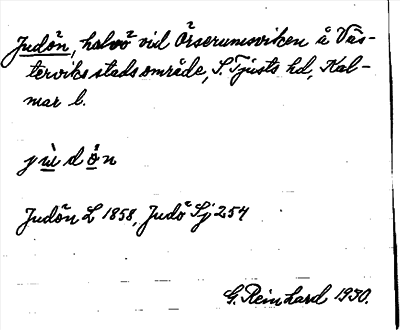 Judön, halvö vid Örserumsviken å Väs-
terviks stadsområde, S. Tjusts hd, Kal-
mar l.
jùdön
Judön L 1858, Judö Sj 254
G. Reinhard 1930.